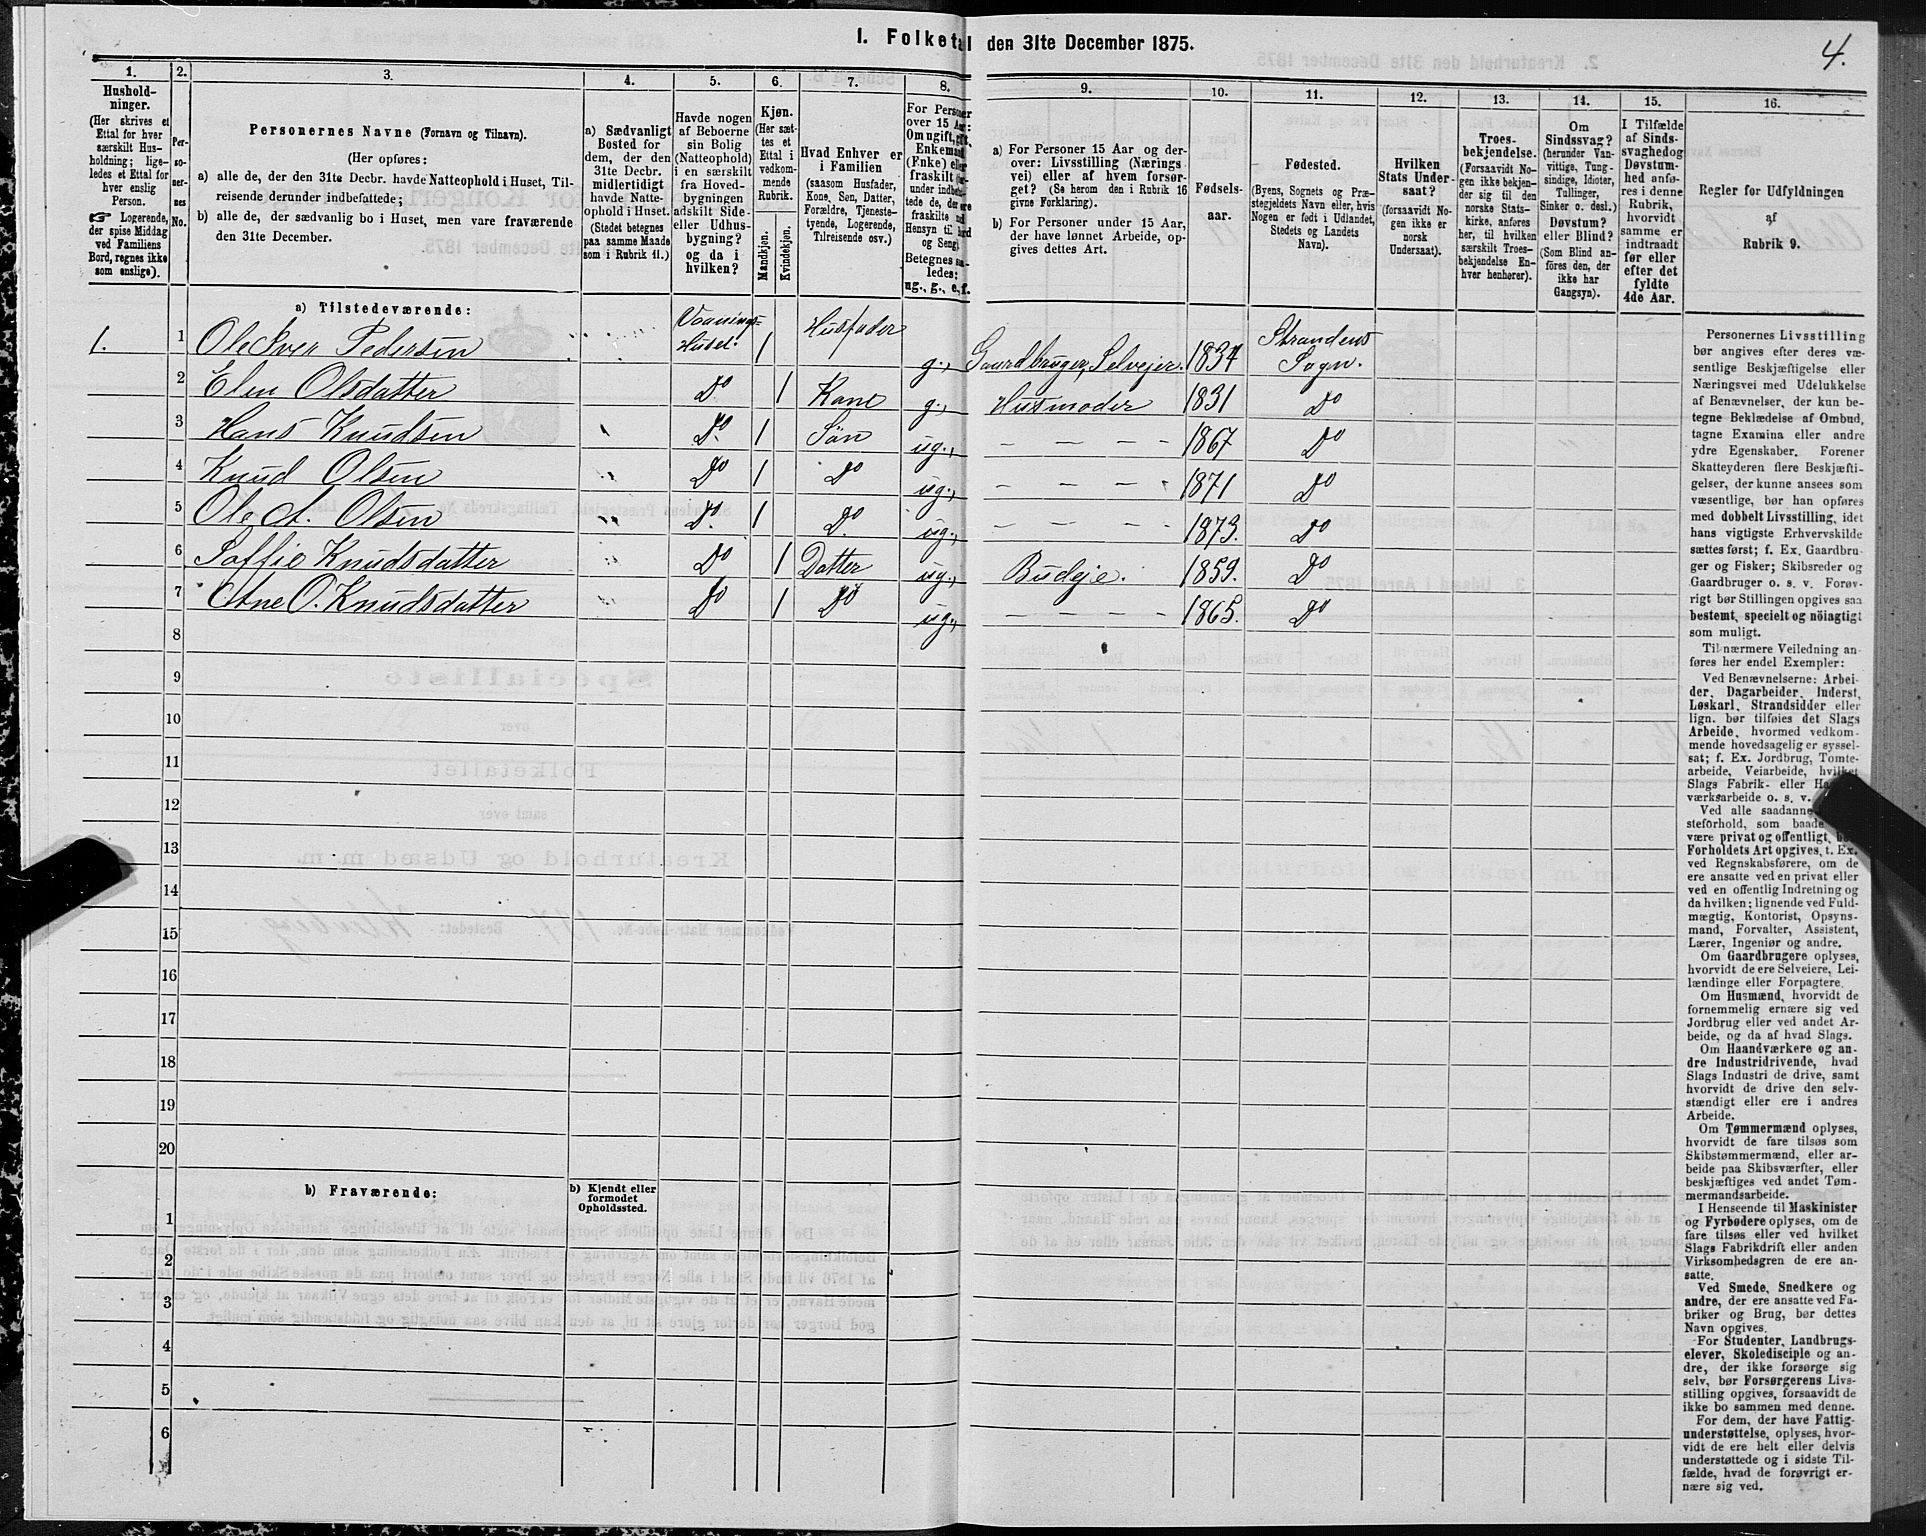 I. Folketal den 31te December 1875.
4.
1. 2. 3. 4. 5. 6. 7. 8. 9. 10. 11. 12. 13. 14. 15. 16.
Hushold-
ninger.
(Her skrives et
Ettal for hver
særskilt Hus-
holdning; lige-
ledes et Ettal for
hver enslig
Person.
☞ Logerende,
der spise Middag
ved Familiens
Bord, regnes ikke
som enslige).
Per-
so-
ner-
nes
No.
Personernes Navne (Fornavn og Tilnavn).
(Her opføres:
a) alle de, der den 31te Decbr. havde Natteophold i Huset, Til-
reisende derunder indbefattede;
b) alle de, der sædvanlig bo i Huset, men vare fraværende
den 31te December.
a) Sædvanligt
Bosted for
dem, der den
31te Decbr.
midlertidigt
havde Natte-
ophold i Huset.
(Stedet betegnes
paa samme Maade
som i Rubrik 11.)
Havde nogen
af Beboerne
sin Bolig
(Natteophold)
i en særskilt
fra Hoved-
bygningen
adskilt Side-
eller Udhus-
bygning?
og da i
hvilken?
Kjøn.
(Her sæt-
tes et
Ettal i
vedkom-
mende
Rubrik.
Mandkjøn.
Kvindekjøn.
Hvad Enhver er
i Familien
(saasom Husfader,
Kone, Søn, Datter,
Forældre, Tjeneste-
tyende, Logerende,
Tilreisende osv.)
For Personer
over 15 Aar:
Om ugift, gift,
Enkemand
(Enke) eller
fraskilt
ug., g., e, f.
a) For Personer 15 Aar og der-
over: Livsstilling (Nærings
vei) eller af hvem forsør-
get? (Se herom den i Rubrik 16
givne Forklaring).
b) For Personer under 15 Aar,
der have lønnet Arbeide, op-
gives dettes Art.
Fødsels-
aar.
Fødested.
(Byens, Sognets og Præ-
stegjeldets Navn eller, hvis
Nogen er født i Udlandet,
Stedets og Landets
Navn).
Hvilken
Stats Under-
saat?
(forsaavidt No-
gen ikke er
norsk
Undersaat).
Troes-
bekjendelse.
(Forsaavidt No-
gen ikke bekjen-
der sig til den
norske Stats-
kirke, anføres
her, til hvilken
særskilt Troes-
bekjendelse En-
hver henhører).
Om
Sindssvag?
(herunder Van-
vittige, Tung-
sindige, Idioter,
Tullinger,
Sinker o. desl.)
Døvstum?
eller Blind?
(Som Blind an-
føres den, der
ikke har
Gangsyn).
I Tilfælde
af Sinds-
svaghed og
Døvstum-
hed anfø-
res i denne
Rubrik,
hvorvidt
samme er
indtraadt
før eller
efter det
fyldte
4de Aar.
Regler for Udfyldningen
af
Rubrik 9.
a) Tilstedeværende:
1. 1 Ole Iver Pedersen Vaanings-Huset. 1 Husfader g., Gaardbruger, Selveier. 1834 Strandens Sogn.
2 Elen Olsdatter Do 1 Kone g., Husmoder 1831 Do
3 Hans Knudsen Do. 1 Søn ug., – – – – 1867 Do
4 Knud Olsen Do 1 Do ug., – – – 1871 Do
5 Ole A. Olsen Do. 1 Do. ug., – – – – 1873. Do
6 Soffie Knudsdatter Do 1 Datter ug., Budeje. 1859. Do
7 Ane O. Knudsdatter Do 1 Do ug., – – – – 1865. Do
8
9
10
11
12
13
14
15
16
17
18
19
20
b) Fraværende:
b) Kjendt eller
formodet
Opholdssted.
1
2
3
4
5
6
Personernes Livsstilling
bør angives efter deres væ-
sentlige Beskjæftigelse eller
Næringsvei med Udelukkelse
af Benævnelser, der kun be-
tegne Beklædelse af Ombud,
tagne Examina eller andre
ydre Egenskaber. Forener
Skatteyderen flere Beskjæfti-
gelser, der kunne ansees som
væsentlige, bør han opføres
med dobbelt Livsstilling, idet
hans vigtigste Erhvervskilde
sættes først; f. Ex. Gaardbru-
ger og Fisker; Skibsreder og
Gaardbruger o. s. v. Forøv-
rigt bør Stillingen opgives saa
bestemt, specielt og nöiagtigt
som muligt.
Til nærmere Veiledning an-
føres her endel Exempler:
Ved Benævnelserne: Arbei-
der, Dagarbeider, Inderst,
Løskarl, Strandsidder eller
lign. bør tilføies det Slags
Arbeide, hvormed vedkom-
mende hovedsagelig er syssel-
sat; f. Ex. Jordbrug, Tomte-
arbeide, Veiarbeide, hvilket
Slags Fabrik- eller
værksarbeide o. s. v.
Ved alle saadanne
steforhold, som baade
være privat og offentligt,
Forholdets Art opgives, t. Ex.
ved Regnskabsførere, om de
ere ansatte ved en privat eller
ved en offentlig Indretning og
da hvilken; lignende ved Fuld-
mægtig, Kontorist, Opsyns-
mand, Forvalter, Assistent,
Lærer, Ingeniør og andre.
Om Gaardbrugere oplyses,
hvorvidt de ere Selveiere, Lei-
lændinge eller Forpagtere.
Om Husmænd, hvorvidt de
fornemmelig ernære sig ved
Jordbrug eller ved andet Ar-
beide, og da af hvad Slags.
Om Haandværkere og an-
dre Industridrivende, hvad
Slags Industri de drive, samt
hvorvidt de drive den selv-
stændigt eller ere i andres
Arbeide.
Om Tømmermænd oplyses,
hvorvidt de fare tilsøs som
Skibstømmermænd, eller ar-
beide paa Skibsværfter, eller
beskjæftiges ved andet Tøm-
mermandsarbeide.
I Henseende til Maskinister
og Fyrbødere oplyses, om de
fare tilsøs eller ved hvilket
Slags Fabrikdrift eller anden
Virksomhedsgren de ere an-
satte.
Ved Smede, Snedkere og
andre, der ere ansatte ved Fa-
briker og Brug, bør dettes
Navn opgives.
For Studenter, Landbrugs-
elever, Skoledisciple og an-
dre, der ikke forsørge sig
selv, bør Forsørgerens Livs-
stilling opgives, forsaavidt de
ikke bo sammen med denne.
For dem, der have Fattig-
understøttelse, oplyses, hvor-
vidt de ere helt eller delvis
understøttede og i sidste Til-
fælde, hvad de forøvrigt er-
nære sig ved.